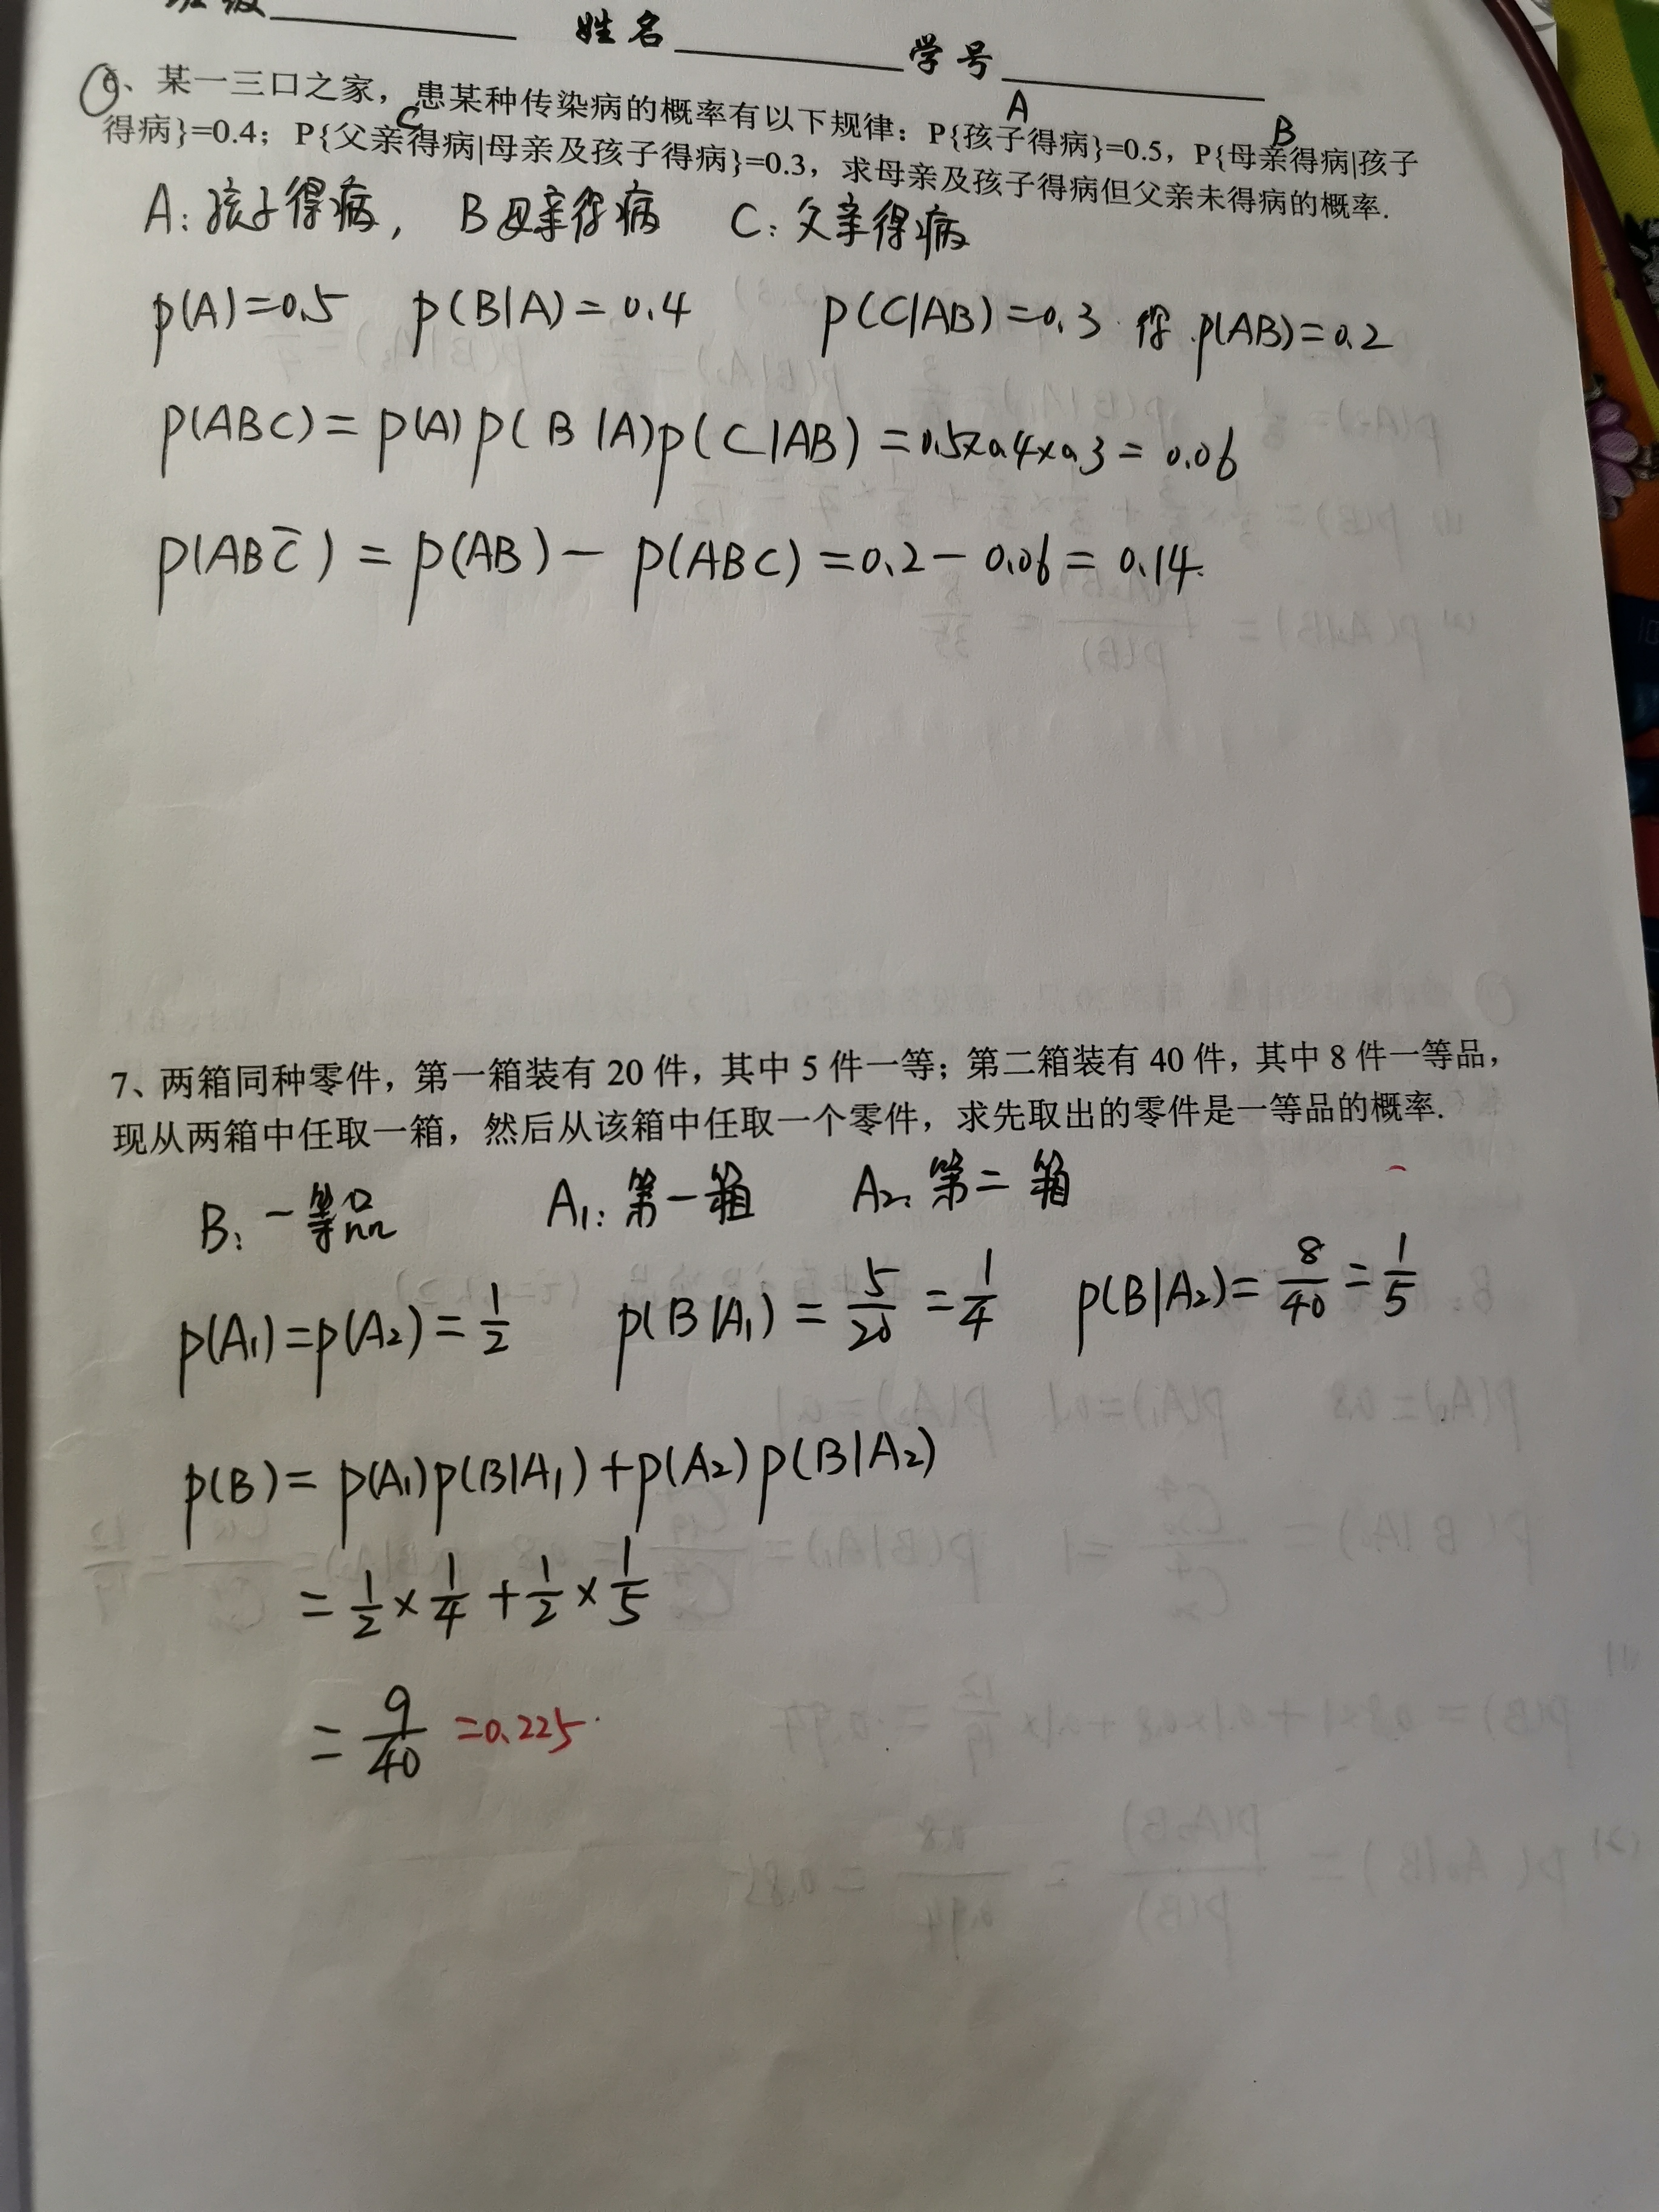 班级 姓名 学号
6、某一三口之家，患某种传染病的概率有以下规律：P{孩子得病}=0.5，P{母亲得病|孩子
A B
得病}=0.4；P{父亲得病|母亲及孩子得病}=0.3，求母亲及孩子得病但父亲未得病的概率.
C
A：孩子得病， B母亲得病 C：父亲得病
p(A)=0.5 p(B|A)=0.4 p(C|AB)=0.3 得 p(AB)=0.2
p(ABC)=p(A)p(B|A)p(C|AB)=0.5×0.4×0.3=0.06
p(ABC̄)=p(AB)-p(ABC)=0.2-0.06=0.14.
7、两箱同种零件，第一箱装有 20 件，其中 5 件一等；第二箱装有 40 件，其中 8 件一等品，
现从两箱中任取一箱，然后从该箱中任取一个零件，求先取出的零件是一等品的概率.
B：一等品 A₁：第一箱 A₂：第二箱
p(A₁)=p(A₂)=1/2 p(B|A₁)=5/20=1/4 p(B|A₂)=8/40=1/5
p(B)=p(A₁)p(B|A₁)+p(A₂)p(B|A₂)
=1/2×1/4+1/2×1/5
=9/40 =0.225